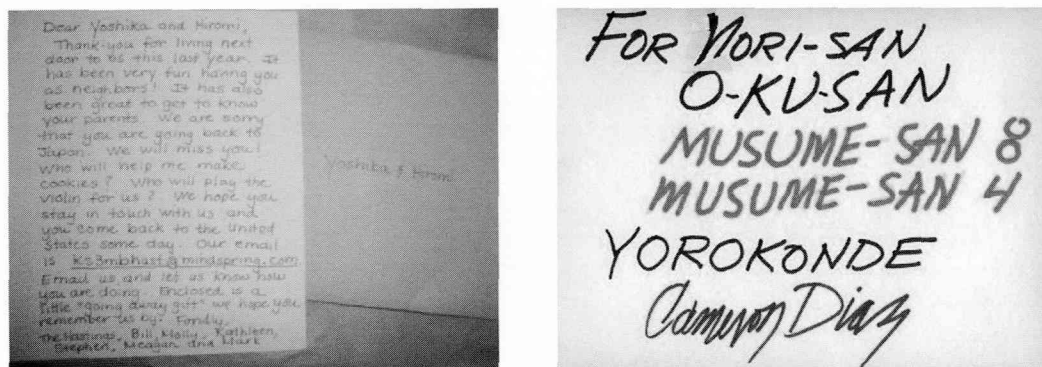 Dear Yoshika and Hiromi,
Thank-you for living next
door to us this last year. It
has been very fun having you
as neighbors! It has also
been great to get to know
your parents. We are sorry
that you are going back to
Japan. We will miss you!
Who will help me make
cookies? Who will play the
violin for us? We hope you
stay in touch with us and
you come back to the United
States some day. Our email
is Ks3mbhast@mindspring.com
Email us and let us know how
you are doing. Enclosed is a
little "going away gift" we hope you
remember us by. Fondly,
The Hastings, Bill, Molly, Kathleen,
Stephen, Meagan and Mark
Yoshika & Hiromi
FOR NORI-SAN
O-KU-SAN
MUSUME-SAN 8
MUSUME-SAN 4
YOROKONDE
Cameron Diaz